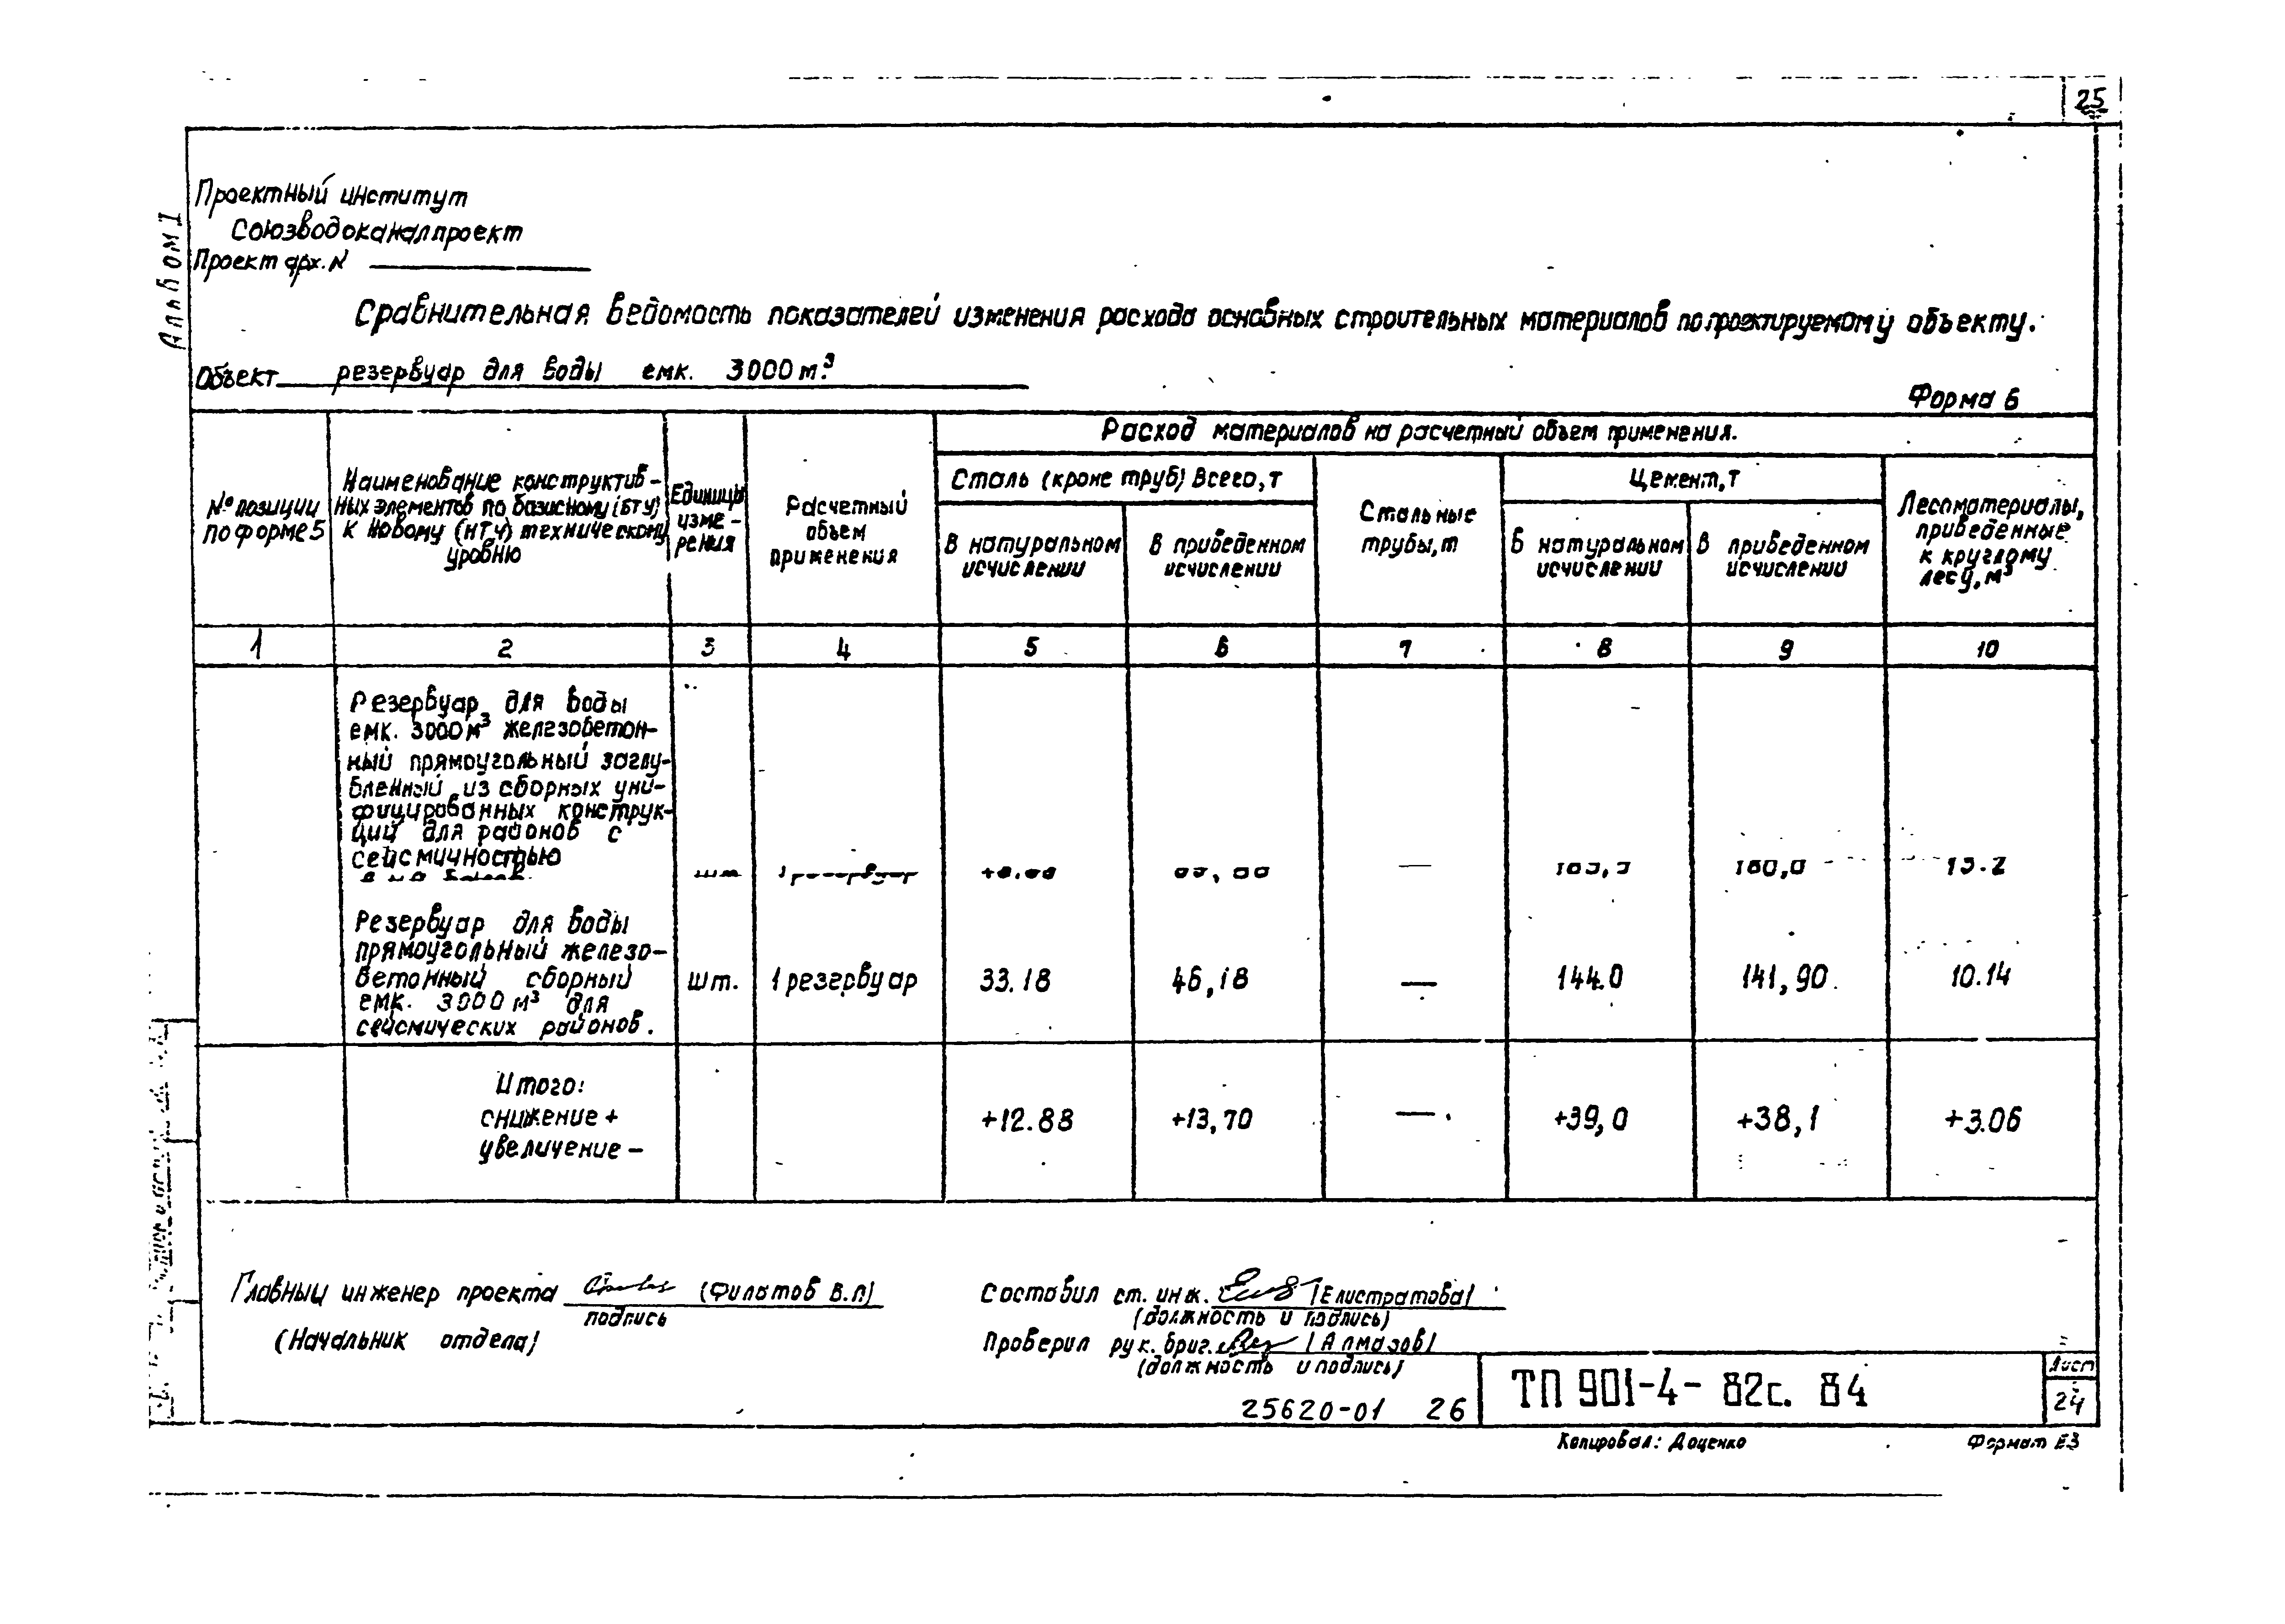 25
Альбом I
Проектный институт
Союзводоканалпроект
Проект арх. N
Сравнительная ведомость показателей изменения расхода основных строительных материалов по проектируемому объекту.
Объект резервуар для воды емк. 3000 м³
Форма 6
№ позиции по форме 5
Наименование конструктив-
ных элементов по базисному (БТУ)
к новому (НТУ) техническому
уровню
Единицы
изме-
рения
Расчетный
объем
применения
Расход материалов на расчетный объем применения.
Сталь (кроме труб) Всего, т
В натуральном
исчислении
В приведенном
исчислении
Стальные
трубы, т
Цемент, т
В натуральном
исчислении
В приведенном
исчислении
Лесоматериалы,
приведенные
к круглому
лесу, м³
1 2 3 4 5 6 7 8 9 10
Резервуар для воды
емк. 3000 м³ железобетон-
ный прямоугольный заглу-
бленный из сборных уни-
фицированных конструк-
ций для районов с
сейсмичностью
—
Резервуар для воды
прямоугольный железо-
бетонный сборный
емк. 3000 м³ для
сейсмических районов.
шт. 1 резервуар 33.18 46,18 — 144.0 141,90 10.14
Итого:
снижение +
увеличение -
+12.88 +13,70 — +39,0 +38,1 +3.06
Главный инженер проекта (Филатов В.П)
подпись
(Начальник отдела)
Составил ст. инж. (Елистратова)
(должность и подпись)
Проверил рук. бриг. (Алмазов)
(должность и подпись)
25620-01 26
ТП 901-4-82с. 84
Лист
24
Копировал: Доценко
Формат Е3